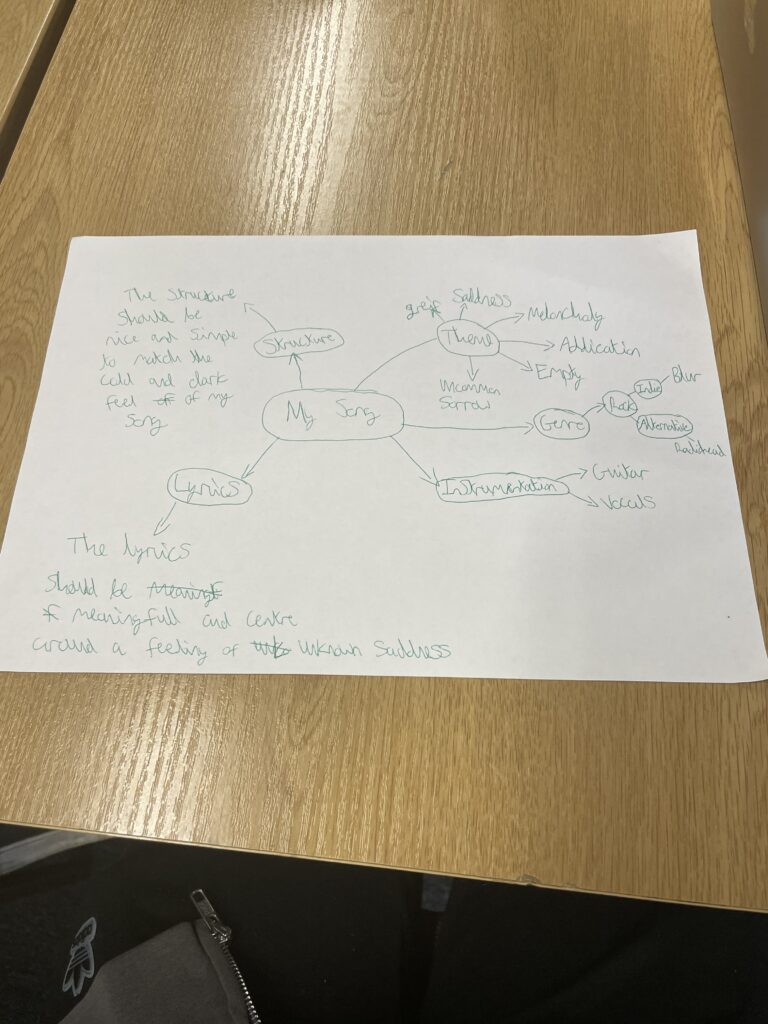 The Structure
should be
nice and Simple
to match the
cold and dark
feel of my
Song
Structure
greif
Saddness
Theme
Melancholy
Addication
Empty
Uncommon
Sorrow
My Song
Genre
Rock
Indie
Blur
Alternative
Radiohead
Lyrics
Instrumentation
Guitar
Vocals
The lyrics
should be
meaningfull and centre
around a feeling of unknown Saddness